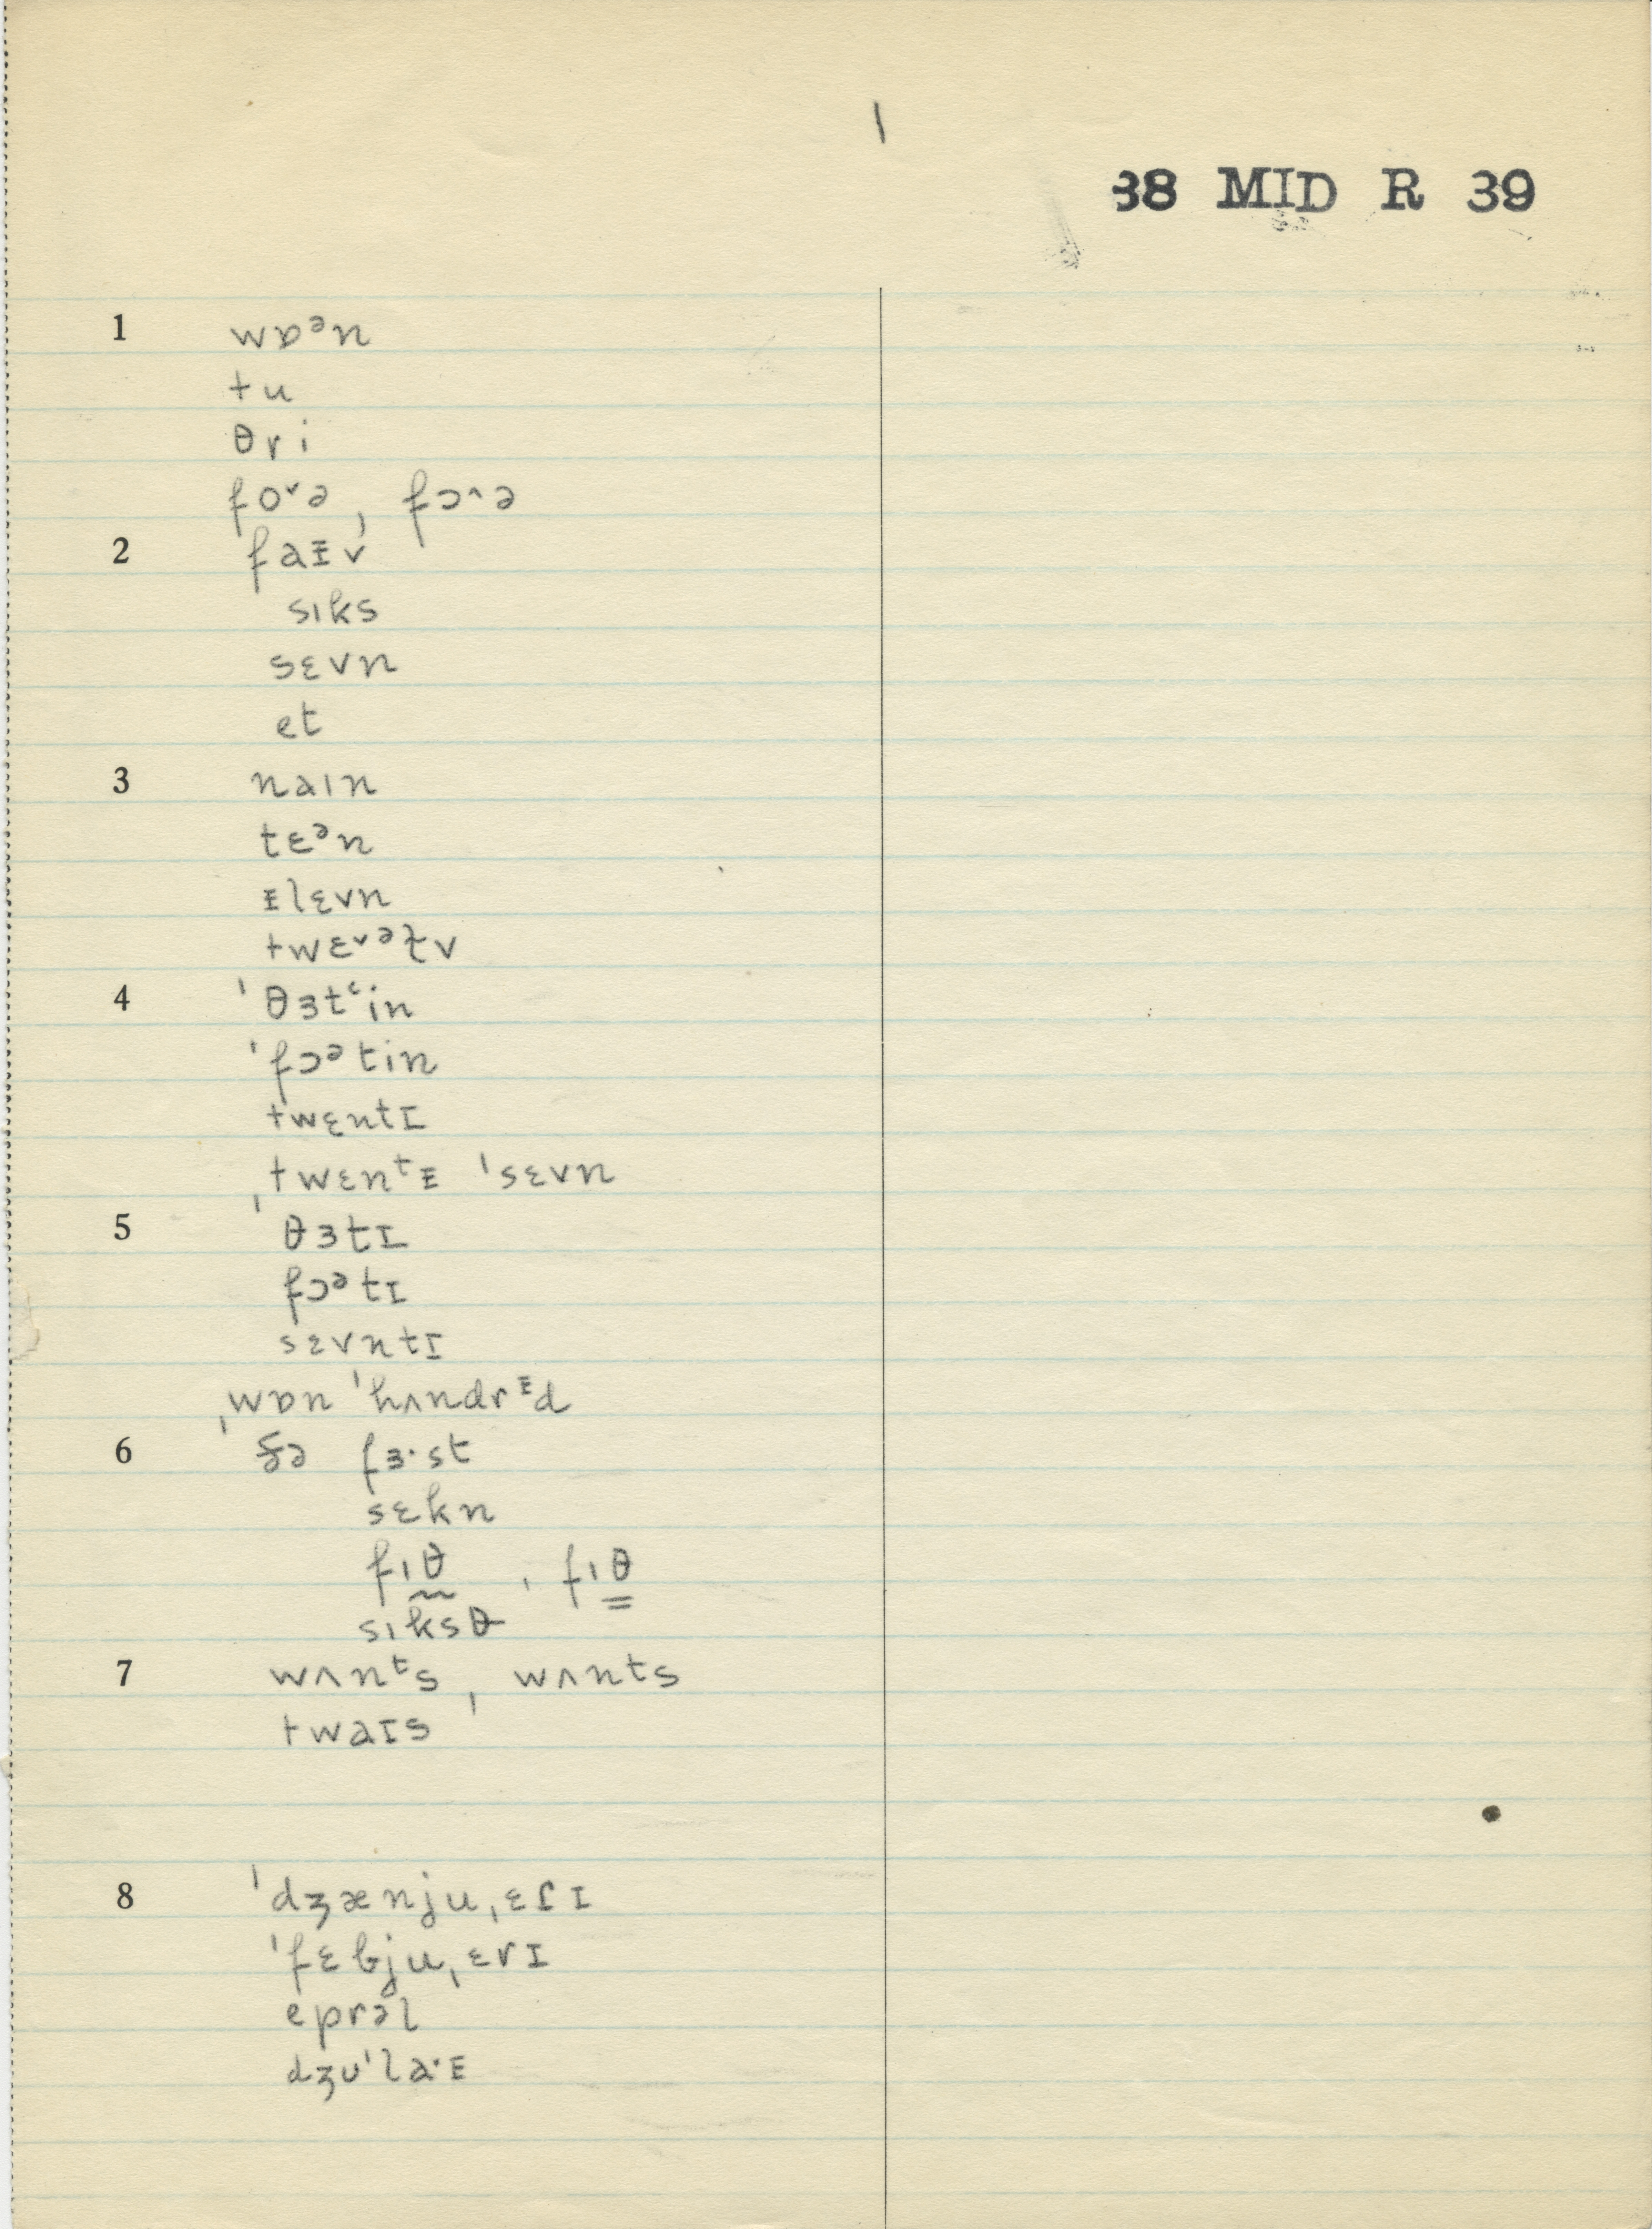 1
38 MID R 39
1 wɒᵊn
tu
θri
fo˅ə, fɔ˄ə
2 faᵻv
sɪks
sɛvn
et
3 naɪn
tɛᵊn
ᵻlɛvn
twɛ˅ᵊɫv
4 ˈθɜtʿin
ˈfɔᵊtin
twɛntɪ
ˌtwɛnᵗᵻ ˈsɛvn
5 θɜtɪ
fɔᵊtɪ
sɛvntɪ
ˌwɒn ˈhʌndrᵻd
6 ðə fɜ·st
sɛkn
fɪθ̰, fɪθ̳
sɪksθ
7 wʌnᵗs, wʌnts
twaɪs
8 ˈdʒænjuˌɛɾɪ
ˈfɛbjuˌɛrɪ
eprəl
dʒʊˈla·ᵻ